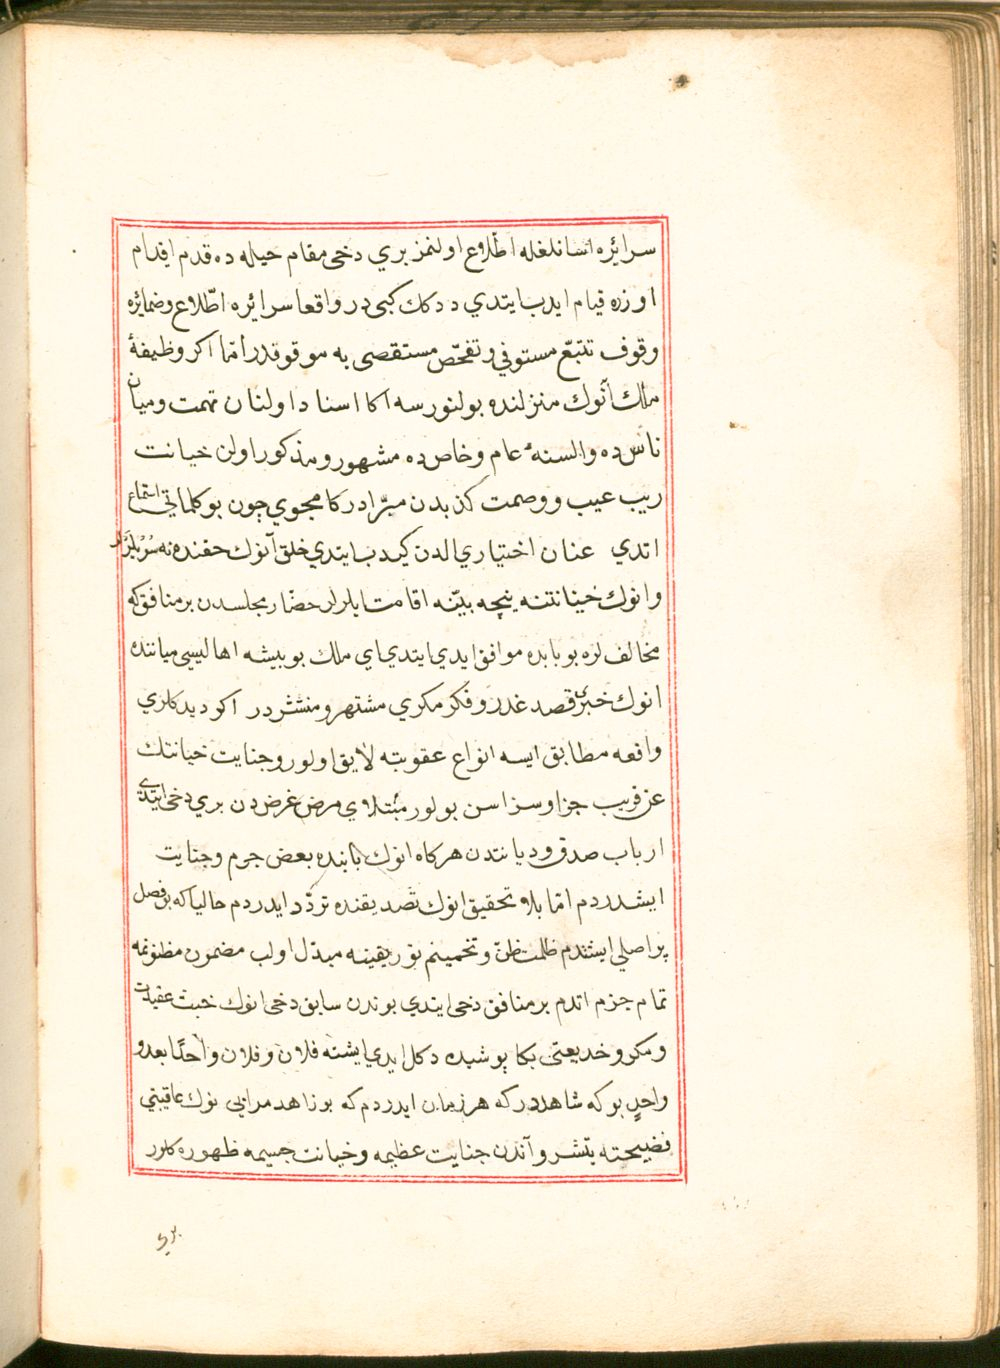 سرائره اسانلغله اطّلاع اولنمز بري دخى مقام حيله ده قدم اقدام
اوزره قيام ايدب ايتدي ددكك كبى در واقعا سرائره اطّلاع وضمائره
وقوف تتبّع مستوفي وتفحّص مستقصى به موقوقدر امّا اكر وظيفۀ
ملك آنوك منزلنده بولنورسه اكا اسناد اولنان تهمت وميان
ناس ده والسنۀ عام وخاص ده مشهور ومذكور اولن خيانت
ريب عيب ووصمت كذبدن مبرّادر كامجوي چون بو كلماتي استماع
اتدي عنان اختياري الدن كيدب ايتدي خلق آنوك حقنده نه سُزبلرلر
وانوك خيانتنه نيچه بيّنه اقامت ايلرلر حضّار مجلسدن بر منافق كه
مخالف لره بو بابده موافق ايدي ايتدي اي ملك بو بيشه اهاليسى مياننده
انوك خبرئ قصد غدر وفكر مكري مشتهر ومنتشردر اكر ديدكلري
واقعه مطابق ايسه انواع عقوبته لايق اولور وجنايت خيانتك
عن قريب جزا وسزاسن بولور مبتلاي مرض غرض دن بري دخى ايتدي
ارباب صدق وديانتدن هركاه انوك بابنده بعض جرم وجنايت
ايشدردم امّا بلا تحقيق انوك تصديقنده تردّد ايدردم حاليا كه بو فصل
پر اصلي ايشتدم ظلمت ظنّ وتخمينم نور يقينه مبدّل اولب مضمون مظنونمه
تمام جزم اتدم بر منافق دخى ايتدي بوندن سابق دخى انوك خبث عقيدت
ومكر وخديعتى بكا پوشيده دكل ايدي ايشته فلان وفلان واحدًا بعد و
واحدٍ بو كه شاهددر كه هر زمان ايدردم كه بو زاهد مرايى نوك عاقبتي
فضيحته يتشر وآندن جنايت عظيمه وخيانت جسيمه ظهوره كلور
بري